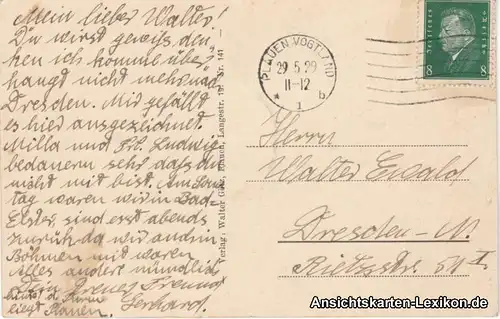 Mein lieber Walter!
Du wirst gewiß den-
ken ich komme über-
haupt nicht mehr nach
Dresden. Mir gefällt
es hier ausgezeichnet.
Milla und Frl. Ludwig
bedauern sehr daß du
nicht mit bist. Am Sonn
tag waren wir in Bad
Elster, sind erst abends
zurück da wir auch in
Böhmen mit waren
Alles andere mündlich
Dein treues Freund
Gerhard.
hinter d. Ruine
liegt Plauen.
Verlag: Walter Plauen, Langestr. Nr. 141
PLAUEN (VOGTLAND)
29.5.29
11-12
* 1 b
Deutsches Reich
8 8
Herrn
Walter Ewald
Dresden-N.
Rietzstr. 51 I
Ansichtskarten-Lexikon.de